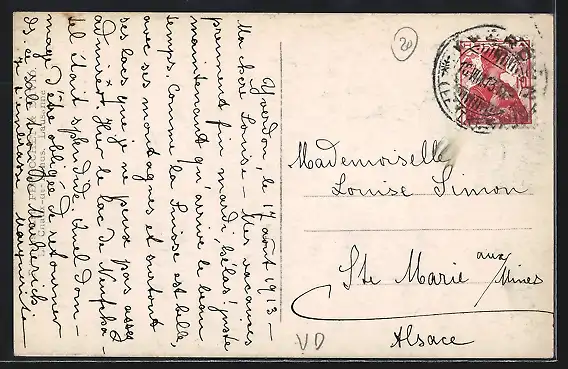 Yverdon, le 17 août 1913 –
Ma chère Louise – Mes vacances
prennent fin mardi, hélas! juste
maintenant qu'arrive le beau
temps. Comme la Suisse est belle,
avec ses montagnes et surtout
ses lacs que je ne peux pas assez
admirer. Hier le lac de Neuchâ-
tel était splendide. Quel dom-
mage d'être obligée de retourner
Je t'embrasse Marguerite
Mademoiselle
Louise Simon
Ste Marie aux
Mines
Alsace
20
VD